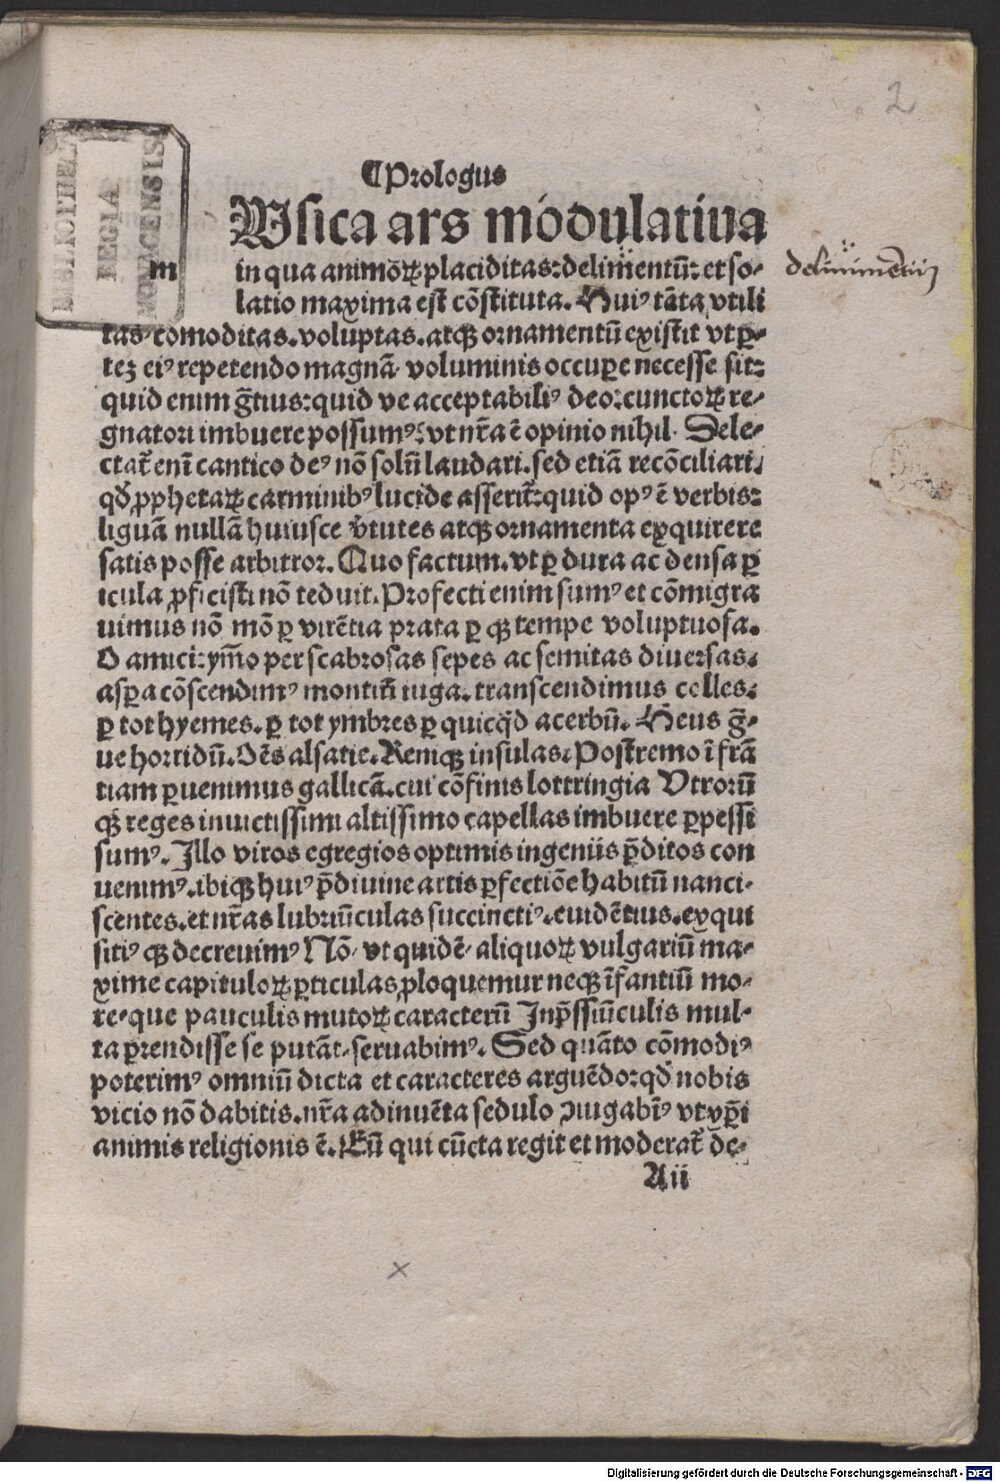 2
BIBLIOTHECA
REGIA
MONACENSIS
¶Prologus
m
Vsica ars modulatiua
in qua animoꝝ placiditas: delimentū: et so-
delinimentū
latio maxima est cōstituta. Huiꝰ tāta vtili
tas comoditas. voluptas. atqꝫ ornamentū existit vt ꝑ-
teꝫ eiꝰ repetendo magnā voluminis occupare necesse sit:
quid enim g̃tius: quid ve acceptabiliꝰ deo: cunctoꝝ re-
gnatori imbuere possumꝰ: vt nr̃a ē opinio nihil. Dele-
ctat̃ eni̅ cantico deꝰ nō solū laudari. sed etiā recōciliari.
qđ ꝓphetaꝝ carminibꝰ lucide asserit̃: quid opꝰ ē verbis:
liguā nullā huiusce v̄tutes atqꝫ ornamenta exquirere
satis posse arbitror. Quo factum. vt ꝑ dura ac densa ꝑi
icula ꝓficisti nō teduit. Profecti enim sumꝰ et cōmigra
uimus nō mō ꝑ virētia prata ꝑ qꝫ tempe voluptuosa.
O amici: ym̄o per scabrosas sepes ac semitas diuersas.
asꝑa cōscendimꝰ montiū iuga. transcendimus colles.
ꝑ tot hyemes. ꝑ tot ymbres ꝑ quicq̄d acerbū. Heus g̃-
ue horridū. Oēs alsatie. Reniqꝫ insulas. Postremo ī frā
tiam ꝑuenimus gallicā. cui cōfinis lottringia Vtrorū
qꝫ reges inuictissimi altissimo capellas imbuere ꝑpessi
sumꝰ. Illo viros egregios optimis ingeniis p̄ditos con
uenimꝰ. ibiqꝫ huiꝰ p̄diuine artis ꝑfectiōe habitū nanci-
scentes. et nr̃as lubriūculas succinctiꝰ. euidētius. exqui
sitiꝰ qꝫ decreuimꝰ Nō vt quidē aliquoꝝ vulgariū ma-
xime capituloꝝ ꝑticulas ꝓloquemur neqꝫ īfantiū mo-
re-que pauculis mutoꝝ caracterū Inp̄ssiūculis mul-
ta ꝑrendisse se putāt-seruabimꝰ. Sed quāto cōmodiꝰ
poterimꝰ omniū dicta et caracteres arguēdo: qđ nobis
vicio nō dabitis. nr̃a adinuēta sedulo ꝯiugabīꝰ vt xp̄i
animis religionis ē. Eū qui cūcta regit et moderat̃ de-
Aii
x
Digitalisierung gefördert durch die Deutsche Forschungsgemeinschaft - DFG